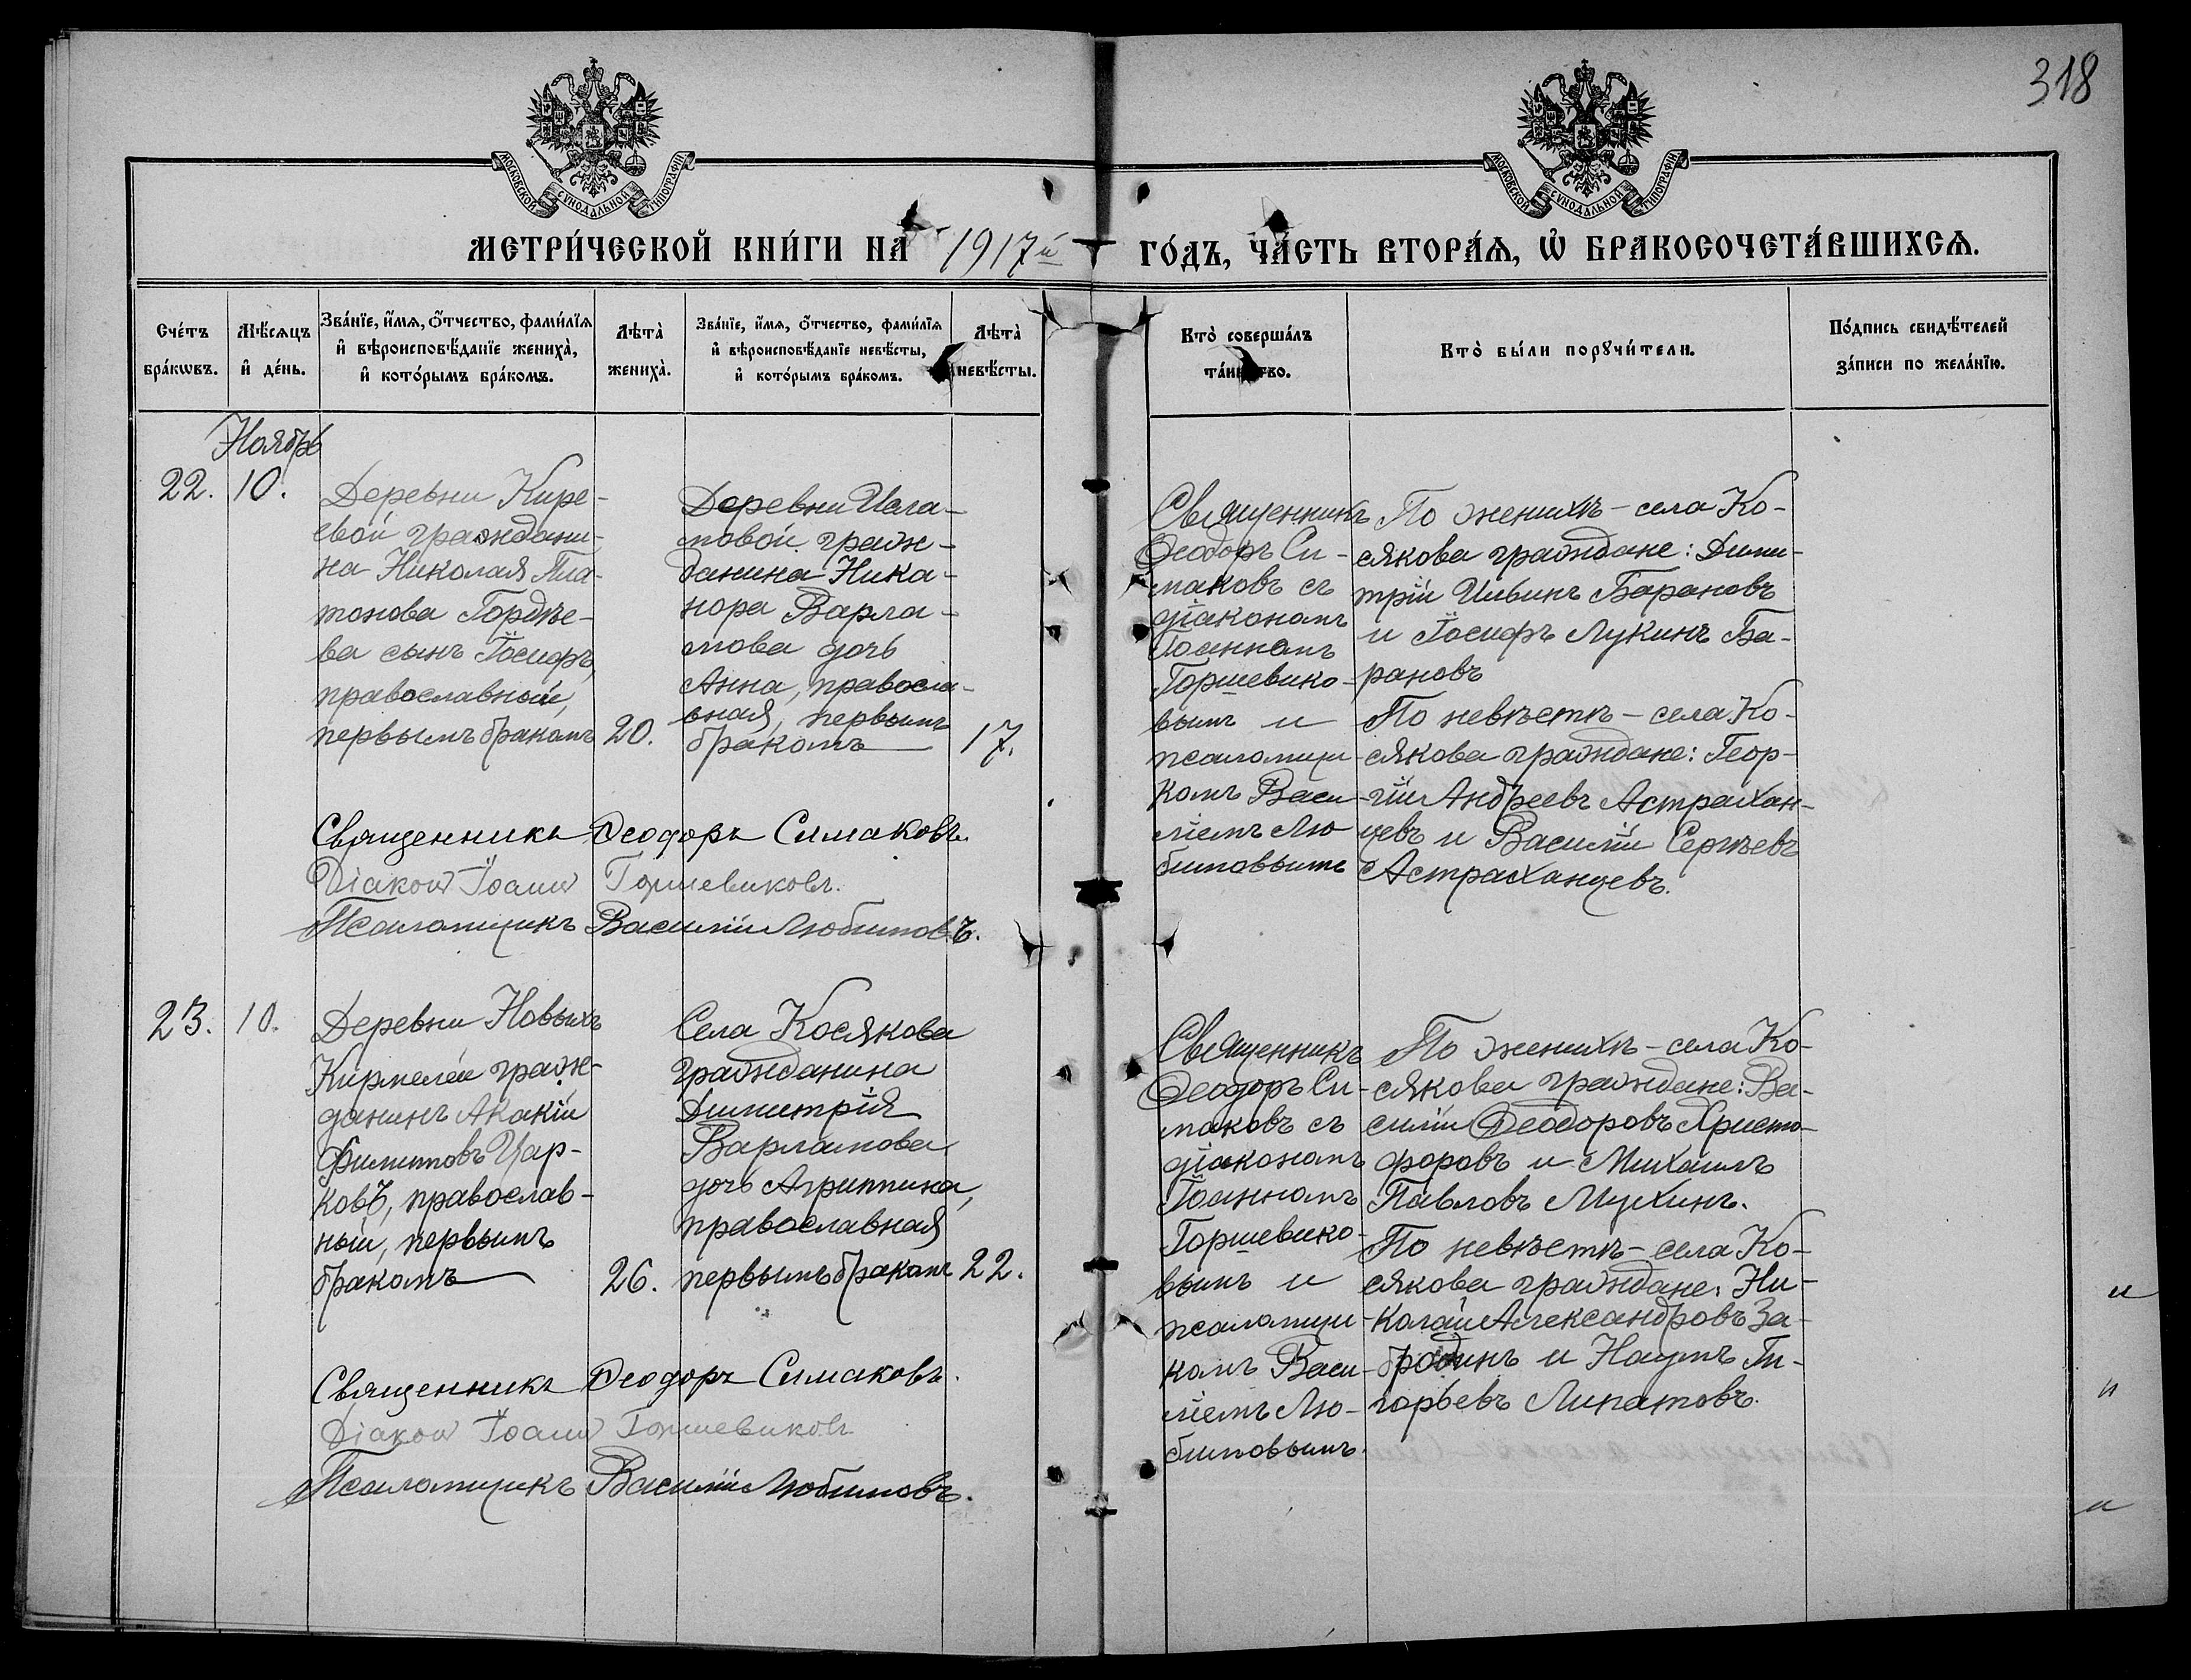 318
МОСКОВСКОЙ СѴНОДАЛЬНОЙ ТИПОГРАФІИ
МОСКОВСКОЙ СѴНОДАЛЬНОЙ ТИПОГРАФІИ
МЕТРИ́ЧЕСКОЙ КНИ́ГИ НА 1917й ГО́ДЪ, ЧА́СТЬ ВТОРА́Ѧ, Ѡ҆ БРАКОСОЧЕТА́ВШИХСѦ.
Сче́тъ
бра́кѡвъ.
Мѣ́сяцъ
и҆ де́нь.
Зва́нїе, и҆́мѧ, ѻ҆́тчество, фами́лїѧ
и҆ вѣроисповѣ́данїе жениха̀,
и҆ кото́рымъ бра́комъ.
Лѣта̀
жениха̀.
Зва́нїе, и҆́мѧ, ѻ҆́тчество, фами́лїѧ
и҆ вѣроисповѣ́данїе невѣ́сты,
и҆ кото́рымъ бра́комъ.
Лѣта̀
невѣ́сты.
Кто̀ соверша́лъ
та́инство.
Кто̀ бы́ли порꙋчи́тели.
По́дпись свидѣ́телей
за́писи по жела́нїю.
Ноябрь
22.
10.
Деревни Кире-
евой граждани-
на Николая Пла-
тонова Гордѣе-
ва сынъ Іосифъ,
православный,
первымъ бракомъ
20.
Деревни Исла-
мовой граж-
данина Ника-
нора Варла-
мова дочь
Анна, правосла-
вная, первымъ
бракомъ
17.
Священникъ
Ѳеодоръ Си-
маковъ съ
діакономъ
Іоанномъ
Горшевико-
вымъ и
псаломщи-
комъ Васи-
ліемъ Лю-
бимовымъ
По женихѣ - села Ко-
сякова граждане: Дими-
трій Ильинъ Барановъ
и Іосифъ Лукинъ Ба-
рановъ
По невѣстѣ - села Ко-
сякова граждане: Геор-
гій Андреевъ Астрахан-
цевъ и Василій Сергѣевъ
Астраханцевъ.
Священникъ Ѳеодоръ Симаковъ.
Діаконъ Іоаннъ Горшевиковъ.
Псаломщикъ Василій Любимовъ.
23.
10.
Деревни Новыхъ
Кирмелей граж-
данинъ Акакій
Филипповъ Цар-
ковъ, православ-
ный, первымъ
бракомъ
26.
Села Косякова
гражданина
Димитрія
Варламова
дочь Агриппина,
православная
первымъ бракомъ
22.
Священникъ
Ѳеодоръ Си-
маковъ съ
діакономъ
Іоанномъ
Горшевико-
вымъ и
псаломщи-
комъ Васи-
ліемъ Лю-
бимовымъ.
По женихѣ - села Ко-
сякова граждане: Ва-
силій Ѳеодоровъ Христо-
форовъ и Михаилъ
Павловъ Мухинъ.
По невѣстѣ - села Ко-
сякова граждане: Ни-
колай Александровъ За-
бродинъ и Наумъ Гри-
горьевъ Липатовъ.
Священникъ Ѳеодоръ Симаковъ.
Діаконъ Іоаннъ Горшевиковъ
Псаломщикъ Василій Любимовъ.